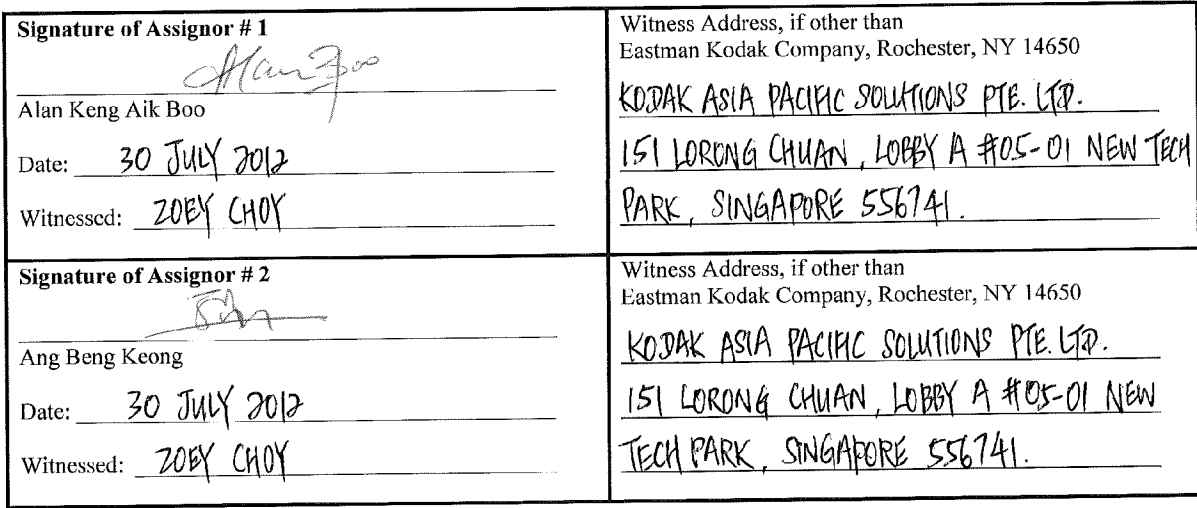 Signature of Assignor # 1
Alan Boo
Alan Keng Aik Boo
Date: 30 JULY 2012
Witnessed: ZOEY CHOY
Witness Address, if other than
Eastman Kodak Company, Rochester, NY 14650
KODAK ASIA PACIFIC SOLUTIONS PTE. LTD.
151 LORONG CHUAN, LOBBY A #05-01 NEW TECH
PARK, SINGAPORE 556741.
Signature of Assignor # 2
Ang Beng Keong
Date: 30 JULY 2012
Witnessed: ZOEY CHOY
Witness Address, if other than
Eastman Kodak Company, Rochester, NY 14650
KODAK ASIA PACIFIC SOLUTIONS PTE. LTD.
151 LORONG CHUAN, LOBBY A #05-01 NEW
TECH PARK, SINGAPORE 556741.